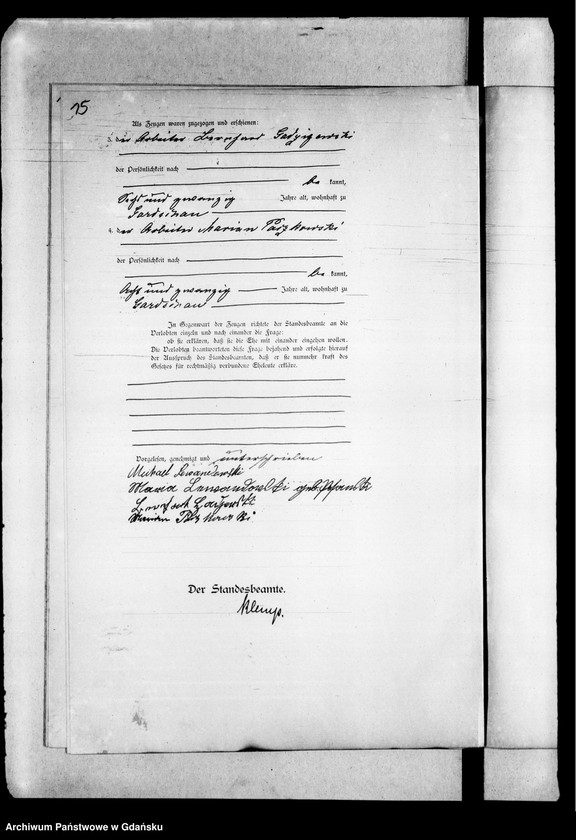 25
Als Zeugen waren zugezogen und erschienen:
3. der Arbeiter Bernhard
der Persönlichkeit nach
be kannt,
Sechs und zwanzig Jahre alt, wohnhaft zu
Gardschau
4. der Arbeiter Marian
der Persönlichkeit nach
be kannt,
Acht und zwanzig Jahre alt, wohnhaft zu
Gardschau
In Gegenwart der Zeugen richtete der Standesbeamte an die
Verlobten einzeln und nach einander die Frage:
ob sie erklären, daß sie die Ehe mit einander eingehen wollen.
Die Verlobten beantworteten diese Frage bejahend und erfolgte hierauf
der Ausspruch des Standesbeamten, daß er sie nunmehr kraft des
Gesetzes für rechtmäßig verbundene Eheleute erkläre.
Vorgelesen, genehmigt und unterschrieben
Michael Lewandowski
Maria Lewandowski geb.
Marian
Der Standesbeamte.
Klemp.
Archiwum Państwowe w Gdańsku